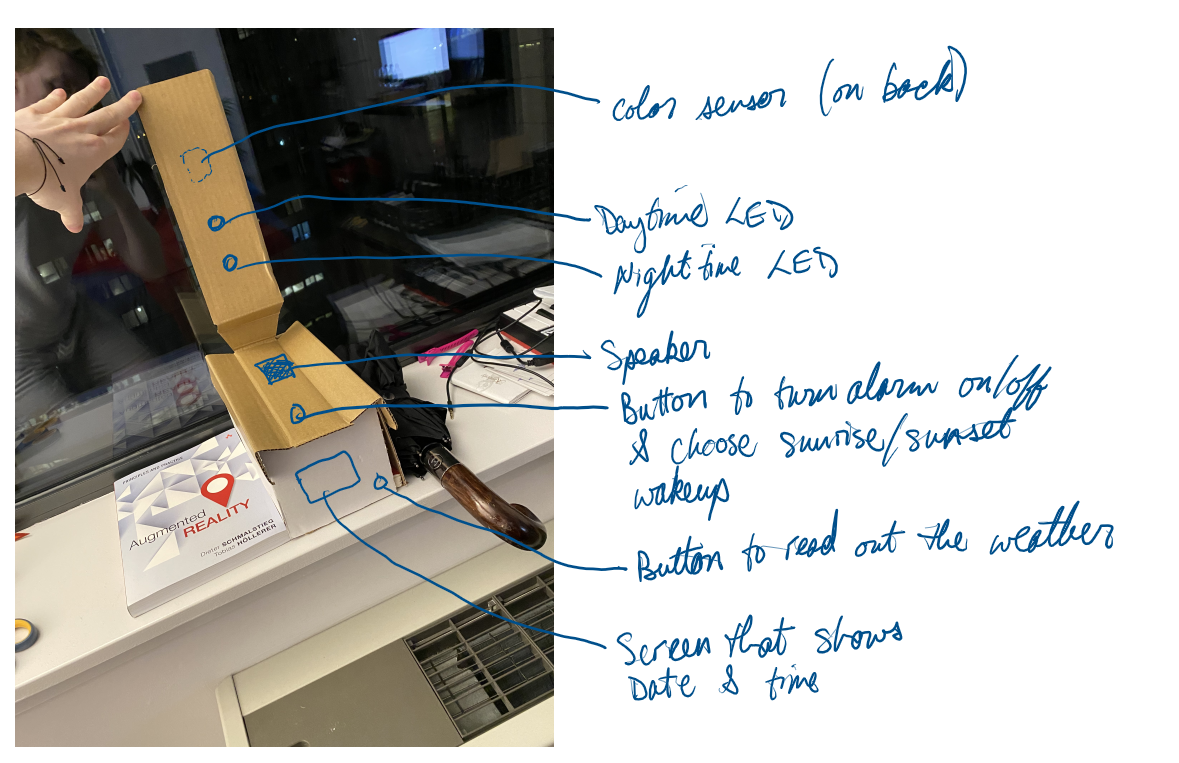 color sensor (on back)
Daytime LED
Nighttime LED
Speaker
Button to turn alarm on/off
& choose sunrise/sunset
wakeup
Button to read out the weather
Screen that shows
Date & time
PRINCIPLES AND PRACTICE
Augmented
REALITY
Dieter SCHMALSTIEG
Tobias HÖLLERER